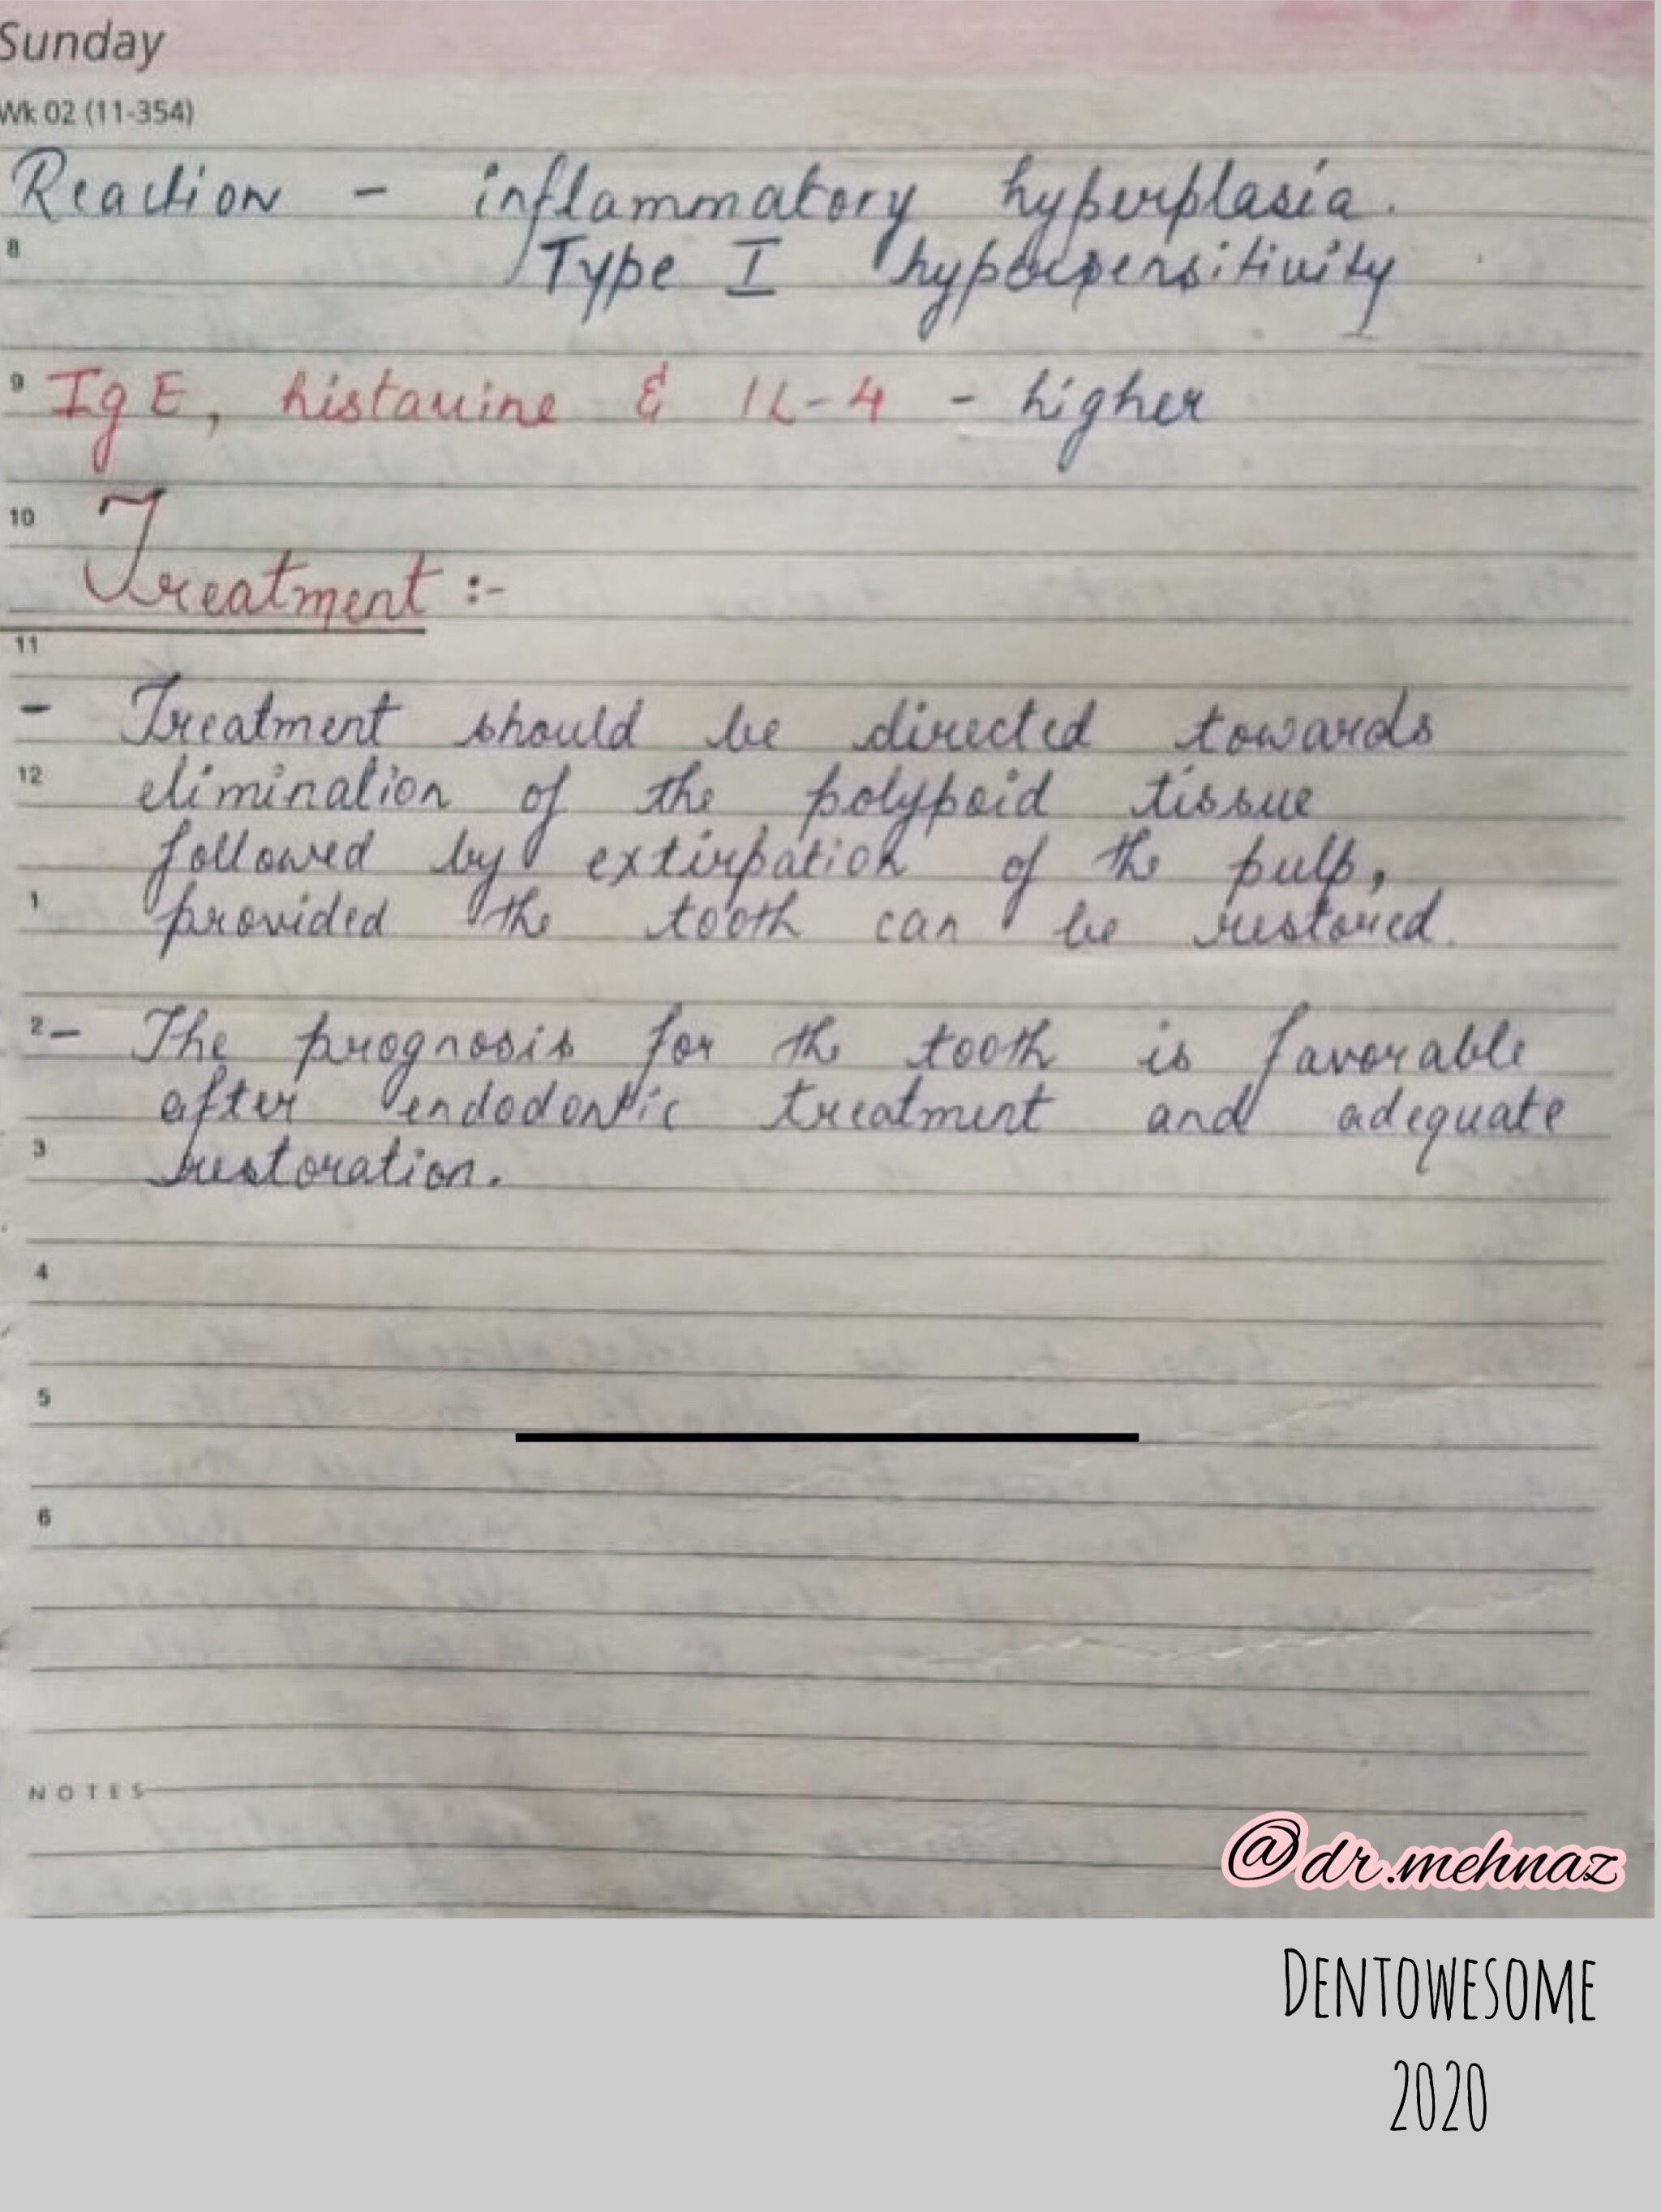 Sunday
Wk 02 (11-354)
Reaction - inflammatory hyperplasia.
8
Type I hypersensitivity
9 IgE, histamine & IL-4 - higher
10
Treatment :-
11
- Treatment should be directed towards
12 elimination of the polypoid tissue
followed by extirpation of the pulp,
1 provided the tooth can be restored.
2 - The prognosis for the tooth is favorable
after endodontic treatment and adequate
3 restoration.
4
5
6
NOTES
@dr.mehnaz
DENTOWESOME
2020